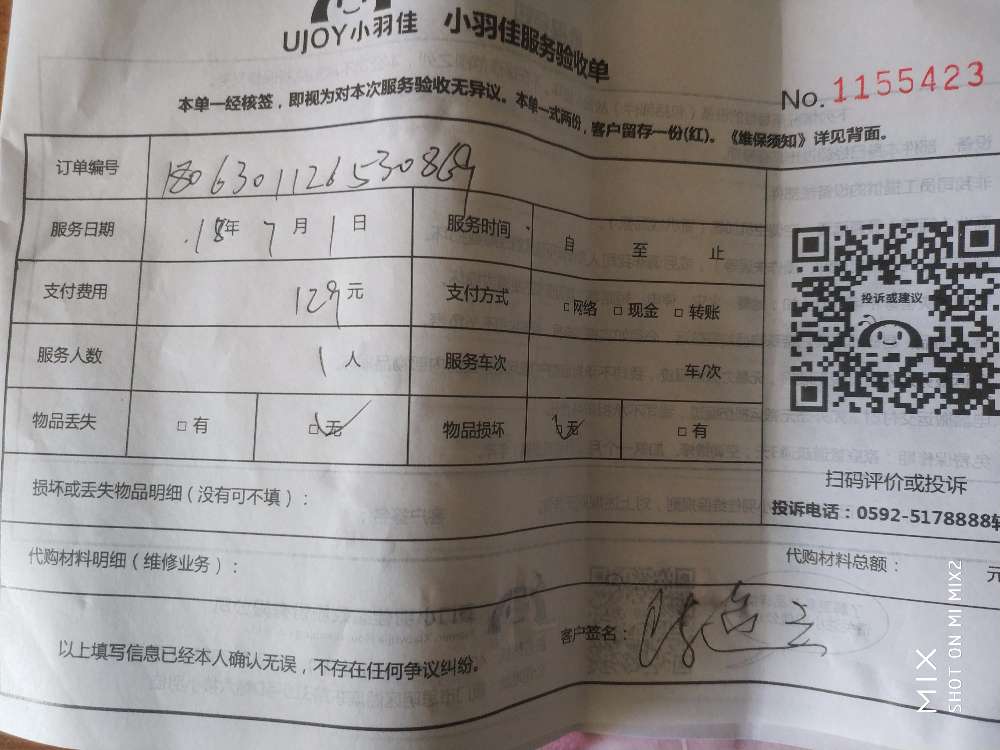 UJOY小羽佳 小羽佳服务验收单
No. 1155423
本单一经核签，即视为对本次服务验收无异议。本单一式两份，客户留存一份(红)。《维保须知》详见背面。
订单编号 180630112653086
服务日期 18年 7月 1日 服务时间 自 至 止
支付费用 129元 支付方式 □网络 □现金 □转账
投诉或建议
服务人数 1人 服务车次 车/次
物品丢失 □有 □无 物品损坏 □无 □有
扫码评价或投诉
损坏或丢失物品明细（没有可不填）：
投诉电话：0592-5178888转
代购材料明细（维修业务）：
代购材料总额： 元
客户签名：
以上填写信息已经本人确认无误，不存在任何争议纠纷。
MIX
SHOT ON MI MIX2